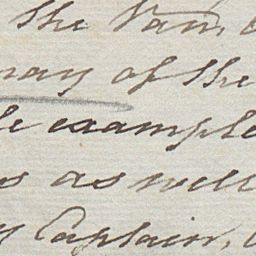 the Van,
may of the
le example
s as well
y Captain,